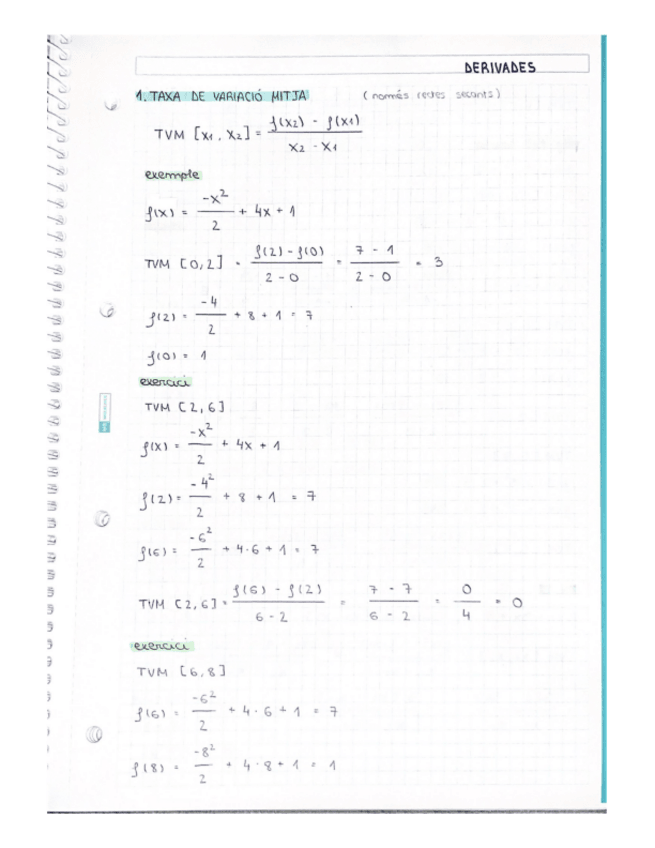 DERIVADES
1. TAXA DE VARIACIÓ MITJA (només rectes secants)
TVM [x1, x2] = f(x2) - f(x1) / x2 - x1
exemple
f(x) = -x²/2 + 4x + 1
TVM [0,2] = f(2) - f(0) / 2 - 0 = 7 - 1 / 2 - 0 = 3
f(2) = -4/2 + 8 + 1 = 7
f(0) = 1
exercici
TVM [2,6]
f(x) = -x²/2 + 4x + 1
f(2) = -4²/2 + 8 + 1 = 7
f(6) = -6²/2 + 4·6 + 1 = 7
TVM [2,6] = f(6) - f(2) / 6 - 2 = 7 - 7 / 6 - 2 = 0/4 = 0
exercici
TVM [6,8]
f(6) = -6²/2 + 4·6 + 1 = 7
f(8) = -8²/2 + 4·8 + 1 = 1